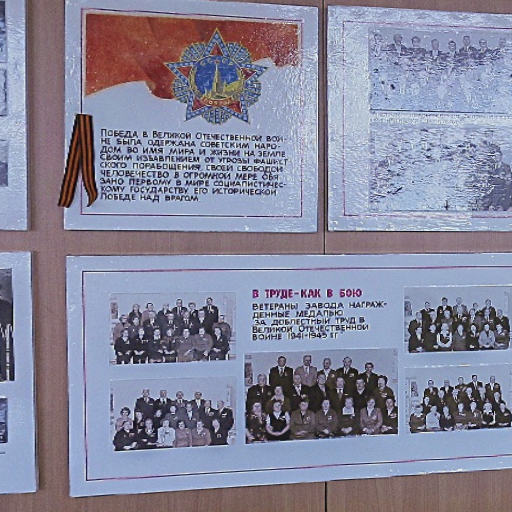 Победа в Великой Отечественной вой-
не была одержана советским наро-
дом во имя мира и жизни на земле.
Своим избавлением от угрозы фашист
ского порабощения, своей свободой
человечество в огромной мере обя
зано первому в мире социалистичес-
кому государству, его исторической
победе над врагом.
В ТРУДЕ-КАК В БОЮ
Ветераны завода награж-
денные медалью
за доблестный труд в
Великой Отечественной
войне 1941-1945 гг.